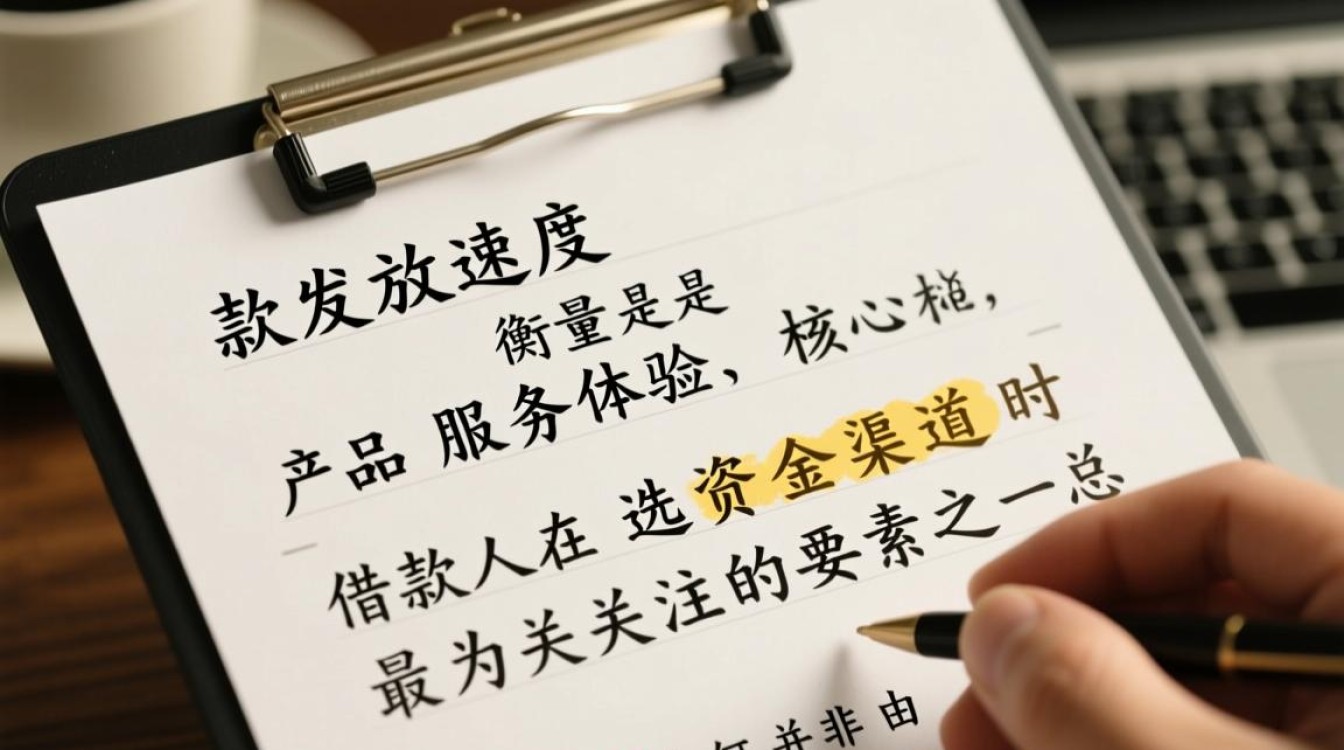 款发放速度
衡量是是
产品 服务体验、核心,
借款人在 选资金渠道时
最为关关注的要素之一总
并非由